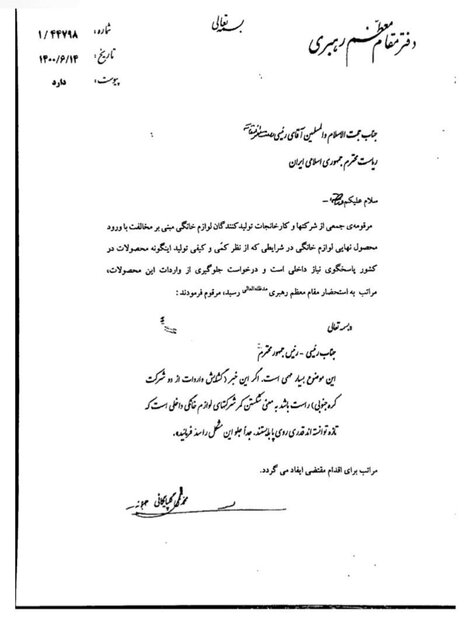 بسمه تعالی
دفتر مقام معظم رهبری
شماره: ۱/۴۴۷۹۸
تاریخ: ۱۴۰۰/۶/۱۴
پیوست: دارد
جناب حجت الاسلام والمسلمین آقای رئیسی
ریاست محترم جمهوری اسلامی ایران
سلام علیکم
مرقومه‌ی جمعی از شرکتها و کارخانجات تولیدکنندگان لوازم خانگی مبنی بر مخالفت با ورود
محصول نهایی لوازم خانگی در شرایطی که از نظر کمّی و کیفی تولید اینگونه محصولات در
کشور پاسخگوی نیاز داخلی است و درخواست جلوگیری از واردات این محصولات،
مراتب به استحضار مقام معظم رهبری مدظله‌العالی رسید، مرقوم فرمودند:
«بسمه تعالی
جناب رئیسی - رئیس جمهور محترم
این موضوع بسیار مهمی است. اگر این خبر (گشایش واردات از دو شرکت
کره جنوبی) راست باشد به معنی شکستن کمر شرکتهای لوازم خانگی داخلی است که
تازه توانسته اند قدری روی پا بایستند. جداً جلو این مشکل را سدّ فرمائید.»
مراتب برای اقدام مقتضی ایفاد می گردد.
محمدی گلپایگانی